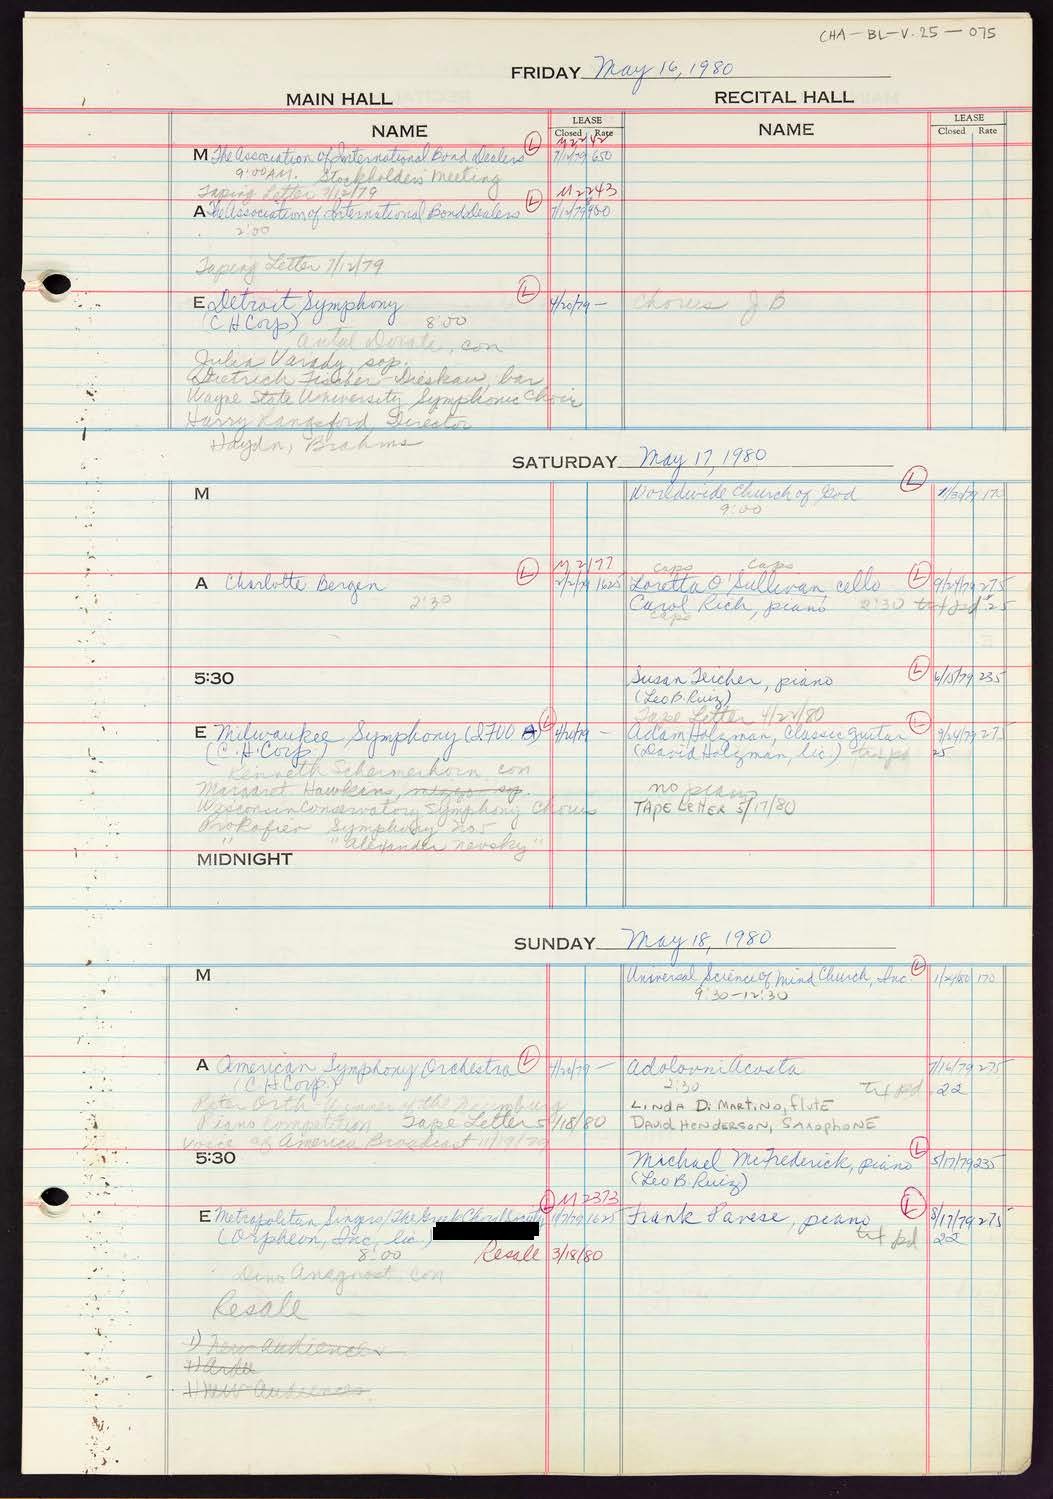 CHA-BL-V.25-075
FRIDAY May 16, 1980
MAIN HALL
RECITAL HALL
NAME
LEASE
Closed Rate
NAME
LEASE
Closed Rate
M2242
M The Association of International Bond Dealers L 7/12/79 650
9:00 AM. Stockholders Meeting
Taping Letter 7/12/79
M2243
A The Association of International Bond Dealers L 7/12/79 900
2:00
Taping Letter 7/12/79
E Detroit Symphony L 4/20/79 — Chorus J B
(C H Corp) 8:00
Antal Dorate, con
Julia Varady, sop.
Dietrich Fischer-Dieskau, bar
Wayne State University Symphonic Choir
Harry Langsford, Director
Haydn, Brahms
SATURDAY May 17, 1980
M Worldwide Church of God L 170
9:00
M2177
caps caps
A Charlotte Bergen L 2/2/79 1625 Loretta O'Sullivan, cello L 9/24/79 275
2:30 Carol Rich, piano 2:30 txt pd 25
caps
5:30 Susan Teicher, piano L 6/15/79 235
(Leo B. Ruiz)
Tape Letter 4/22/80
E Milwaukee Symphony (2700 A) L 4/20/79 — Adam Holzman, Classic guitar L 9/24/79 275
(C. H. Corp) (David Holzman, lic.) txt pd 25
Kenneth Schermerhorn con
Margaret Hawkins, mezzo-sop. no piano
Wisconsin Conservatory Symphony Chorus TAPE LETTER 5/17/80
Prokofiev Symphony No 5
" "Alexander Nevsky"
MIDNIGHT
SUNDAY May 18, 1980
M Universal Science of Mind Church, Inc. L 1/24/80 170
9:30-12:30
A American Symphony Orchestra L 4/20/79 — Adolovni Acosta 7/16/79 275
(C H Corp.) 2:30 txt pd 22
Peter Orth - Winner of the Naumburg LINDA DiMARTINO, FLUTE
Piano Competition Tape Letter 5/18/80 DAVID HENDERSON, SAXOPHONE
Voice of America Broadcast 11/19/79
5:30 Michael McFrederick, piano L 5/17/79 235
(Leo B. Ruiz)
L M2373
E Metropolitan Singers/The Greek Choral Society 9/7/79 1625 Frank Pavese, piano L 8/17/79 275
(Orpheon, Inc, lic.) txt pd 22
8:00 Resale 3/18/80
Dino Anagnost con
Resale
1) New Audiences
1) New Audiences